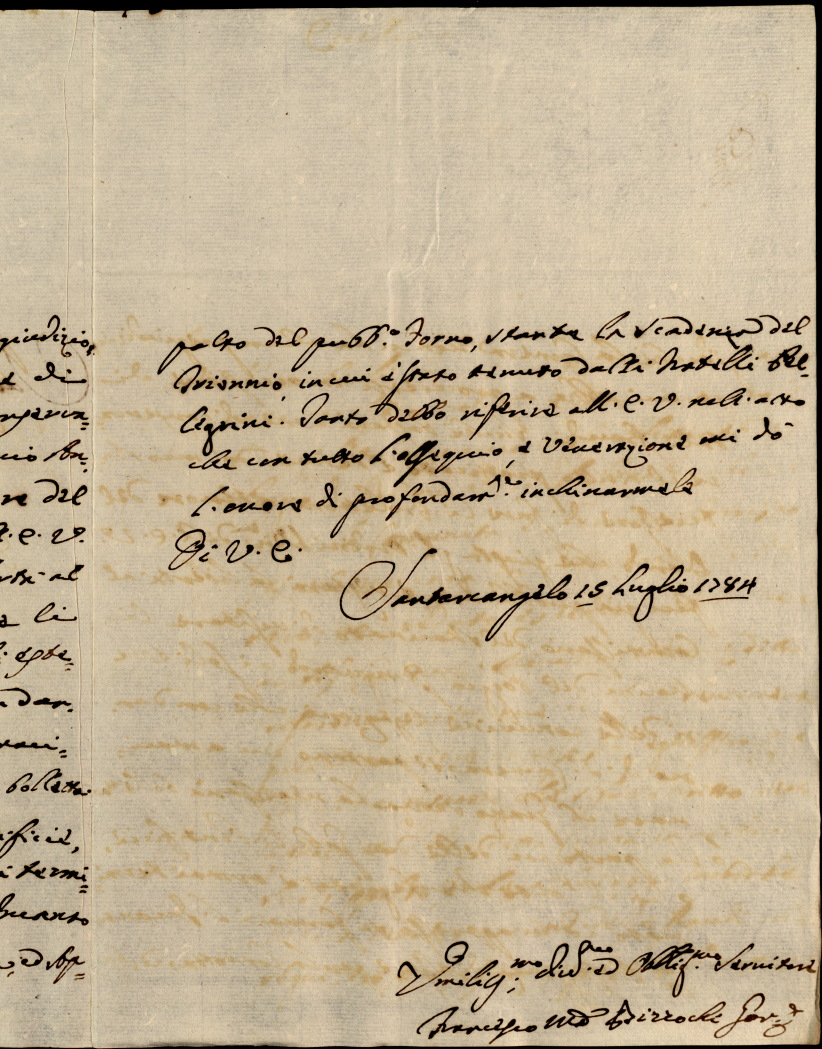 giudizio,
e di
ngeren=
cio An=
re del
A. E. V.
rti al
e li
: este=
n dar=
raci=
bolletta
ficie,
i termi=
Incanto
, ed Ap=
palto del pubb.o Forno, stante la scadenza del
Triennio, in cui è stato tenuto dalli Fratelli Pel=
legrini. Tanto debbo riferire all'E. V. nell'atto
che con tutto l'ossequio, e venerazione mi dò
l'onore di profondam.te inchinarmele
Di V. E.
Santarcangelo 15 Luglio 1784
Umilis.mo div.mo ed Obblig.mo Servitore
Francesco M.a Gov.e